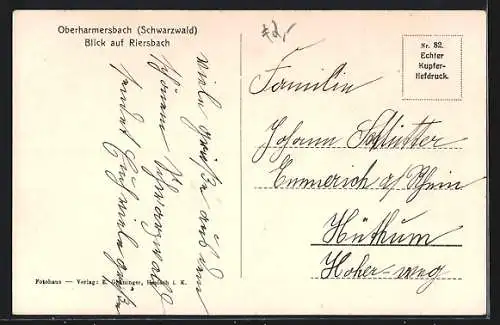 Oberharmersbach (Schwarzwald)
Blick auf Riersbach
Nr. 82.
Echter
Kupfer-
tiefdruck.
Viele Grüße aus dem
schönen Schwarzwald
sendet Euch viele Grüße
Familie
Johann Schlütter
Emmerich a/Rhein
Hüthum
Hoher-weg
Fotohaus — Verlag: K. Grüninger, Haslach i. K.